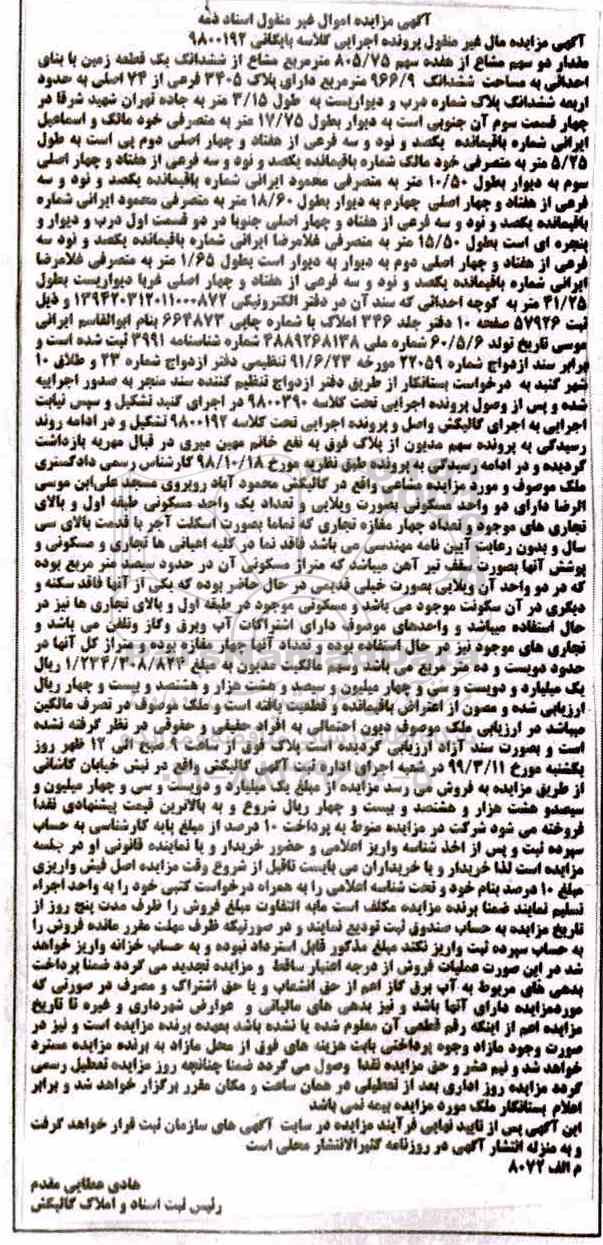 آگهی مزایده اموال غیر منقول اسناد ذمه
آگهی مزایده مال غیر منقول پرونده اجرایی کلاسه بایگانی ۹۸۰۰۱۹۲
مقدار دو سهم مشاع از هفده سهم ۸۰۵/۷۵ مترمربع مشاع از ششدانگ یک قطعه زمین با بنای
احداثی به مساحت ششدانگ ۹۶۶/۹ مترمربع دارای پلاک ۳۴۰۵ فرعی از ۷۴ اصلی به حدود
اربعه ششدانگ پلاک شماره درب و دیواریست به طول ۳/۱۵ متر به جاده تهران شهید شرقا در
چهار قسمت سوم آن جنوبی است به دیوار بطول ۱۷/۷۵ متر به متصرفی خود مالک و اسماعیل
ایرانی شماره باقیمانده یکصد و نود و سه فرعی از هفتاد و چهار اصلی دوم پی است به طول
۵/۲۵ متر به متصرفی خود مالک شماره باقیمانده یکصد و نود و سه فرعی از هفتاد و چهار اصلی
سوم به دیوار بطول ۱۰/۵۰ متر به متصرفی محمود ایرانی شماره باقیمانده یکصد و نود و سه
فرعی از هفتاد و چهار اصلی چهارم به دیوار بطول ۱۸/۶۰ متر به متصرفی محمود ایرانی شماره
باقیمانده یکصد و نود و سه فرعی از هفتاد و چهار اصلی جنوبا در دو قسمت اول درب و دیوار و
پنجره ای است بطول ۱۵/۵۰ متر به متصرفی غلامرضا ایرانی شماره باقیمانده یکصد و نود سه
فرعی از هفتاد و چهار اصلی دوم به دیوار به دیوار است بطول ۱/۶۵ متر به متصرفی غلامرضا
ایرانی شماره باقیمانده یکصد و نود و سه فرعی از هفتاد و چهار اصلی غربا دیواریست بطول
۴۱/۲۵ متر به کوچه احداثی که سند آن در دفتر الکترونیکی ۱۳۹۴۲۰۳۱۲۰۱۱۰۰۰۸۷۲ و ذیل
ثبت ۵۷۹۲۶ صفحه ۱۰ دفتر جلد ۳۴۶ املاک با شماره چاپی ۶۶۴۸۷۳ بنام ابوالقاسم ایرانی
موسی تاریخ تولد ۶۰/۵/۶ شماره ملی ۴۸۸۹۲۶۸۱۳۸ شماره شناسنامه ۳۹۹۱ ثبت شده است و
برابر سند ازدواج شماره ۲۲۰۵۹ مورخه ۹۱/۶/۲۳ تنظیمی دفتر ازدواج شماره ۲۳ و طلاق ۱۰
شهر گنبد به درخواست بستانکار از طریق دفتر ازدواج تنظیم کننده سند منجر به صدور اجراییه
شده و پس از وصول پرونده اجرایی تحت کلاسه ۹۸۰۰۳۹۰ در اجرای گنبد تشکیل و سپس نیابت
اجرایی به اجرای گالیکش واصل و پرونده اجرایی تحت کلاسه ۹۸۰۰۱۹۲ تشکیل و در ادامه روند
رسیدگی به پرونده سهم مدیون از پلاک فوق به نفع خانم مهین میری در قبال مهریه بازداشت
گردیده و در ادامه رسیدگی به پرونده طبق نظریه مورخ ۹۸/۱۰/۱۸ کارشناس رسمی دادگستری
ملک موصوف و مورد مزایده مشاعی واقع در گالیکش محمود آباد روبروی مسجد علی‌ابن موسی
الرضا دارای دو واحد مسکونی بصورت ویلایی و تعداد یک واحد مسکونی طبقه اول و بالای
تجاری های موجود و تعداد چهار مغازه تجاری که تماما بصورت اسکلت آجر با قدمت بالای سی
سال و بدون رعایت آیین نامه مهندسی می باشد فاقد نما در کلیه اعیانی ها تجاری و مسکونی و
پوشش آنها بصورت سقف تیر آهن میباشد که متراژ مسکونی آن در حدود سیصد متر مربع بوده
که در دو واحد آن ویلایی بصورت خیلی قدیمی در حال حاضر بوده که یکی از آنها فاقد سکنه و
دیگری در آن سکونت موجود می باشد و مسکونی موجود در طبقه اول و بالای تجاری ها نیز در
حال استفاده میباشد و واحدهای موصوف دارای اشتراکات آب وبرق وگاز وتلفن می باشد و
تجاری های موجود نیز در حال استفاده بوده و تعداد آنها چهار مغازه بوده و متراژ کل آنها در
حدود دویست و ده متر مربع می باشد وسهم مالکیت مدیون به مبلغ ۱/۲۳۴/۳۰۸/۸۲۴ ریال
یک میلیارد و دویست و سی و چهار میلیون و سیصد و هشت هزار و هشتصد و بیست و چهار ریال
ارزیابی شده و مصون از اعتراض باقیمانده و قطعیت یافته است و ملک موصوف در تصرف مالکین
میباشد در ارزیابی ملک موصوف دیون احتمالی به افراد حقیقی و حقوقی در نظر گرفته نشده
است و بصورت سند آزاد ارزیابی گردیده است پلاک فوق از ساعت ۹ صبح الی ۱۲ ظهر روز
یکشنبه مورخ ۹۹/۳/۱۱ در شعبه اجرای اداره ثبت آگهی گالیکش واقع در نبش خیابان کاشانی
از طریق مزایده به فروش می رسد مزایده از مبلغ یک میلیارد و دویست و سی و چهار میلیون و
سیصدو هشت هزار و هشتصد و بیست و چهار ریال شروع و به بالاترین قیمت پیشنهادی نقدا
فروخته می شود شرکت در مزایده منوط به پرداخت ۱۰ درصد از مبلغ پایه کارشناسی به حساب
سپرده ثبت و پس از اخذ شناسه واریز اعلامی و حضور خریدار و یا نماینده قانونی او در جلسه
مزایده است لذا خریدار و یا خریداران می بایست تاقبل از شروع وقت مزایده اصل فیش واریزی
مبلغ ۱۰ درصد بنام خود و تحت شناسه اعلامی را به همراه درخواست کتبی خود را به واحد اجراء
تسلیم نمایند ضمنا برنده مزایده مکلف است مابه التفاوت مبلغ فروش را ظرف مدت پنج روز از
تاریخ مزایده به حساب صندوق ثبت تودیع نمایند و در صورتیکه ظرف مهلت مقرر مانده فروش را
به حساب سپرده ثبت واریز نکند مبلغ مذکور قابل استرداد نبوده و به حساب خزانه واریز خواهد
شد در این صورت عملیات فروش از درجه اعتبار ساقط و مزایده تجدید می گردد ضمنا پرداخت
بدهی های مربوط به آب برق گاز اعم از حق انشعاب و یا حق اشتراک و مصرف در صورتی که
موردمزایده دارای آنها باشد و نیز بدهی های مالیاتی و عوارض شهرداری و غیره تا تاریخ
مزایده اعم از اینکه رقم قطعی آن معلوم شده یا نشده باشد بعهده برنده مزایده است و نیز در
صورت وجود مازاد وجوه پرداختی بابت هزینه های فوق از محل مازاد به برنده مزایده مسترد
خواهد شد و نیم عشر و حق مزایده نقدا وصول می گردد ضمنا چنانچه روز مزایده تعطیل رسمی
گردد مزایده روز اداری بعد از تعطیلی در همان ساعت و مکان مقرر برگزار خواهد شد و برابر
اعلام بستانکار ملک مورد مزایده بیمه نمی باشد
این آگهی پس از تایید نهایی فرآیند مزایده در سایت آگهی های سازمان ثبت قرار خواهد گرفت
و به منزله انتشار آگهی در روزنامه کثیرالانتشار محلی است
م الف ۸۰۷۲
هادی عطایی مقدم
رئیس ثبت اسناد و املاک گالیکش